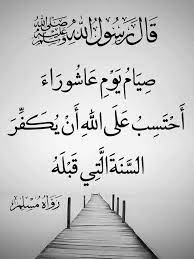 قَالَ رَسُولُ اللهِ ﷺ
صِيَامُ يَوْمِ عَاشُورَاءَ
أَحْتَسِبُ عَلَى اللهِ أَنْ يُكَفِّرَ
السَّنَةَ الَّتِي قَبْلَهُ
رَوَاهُ مُسْلِم